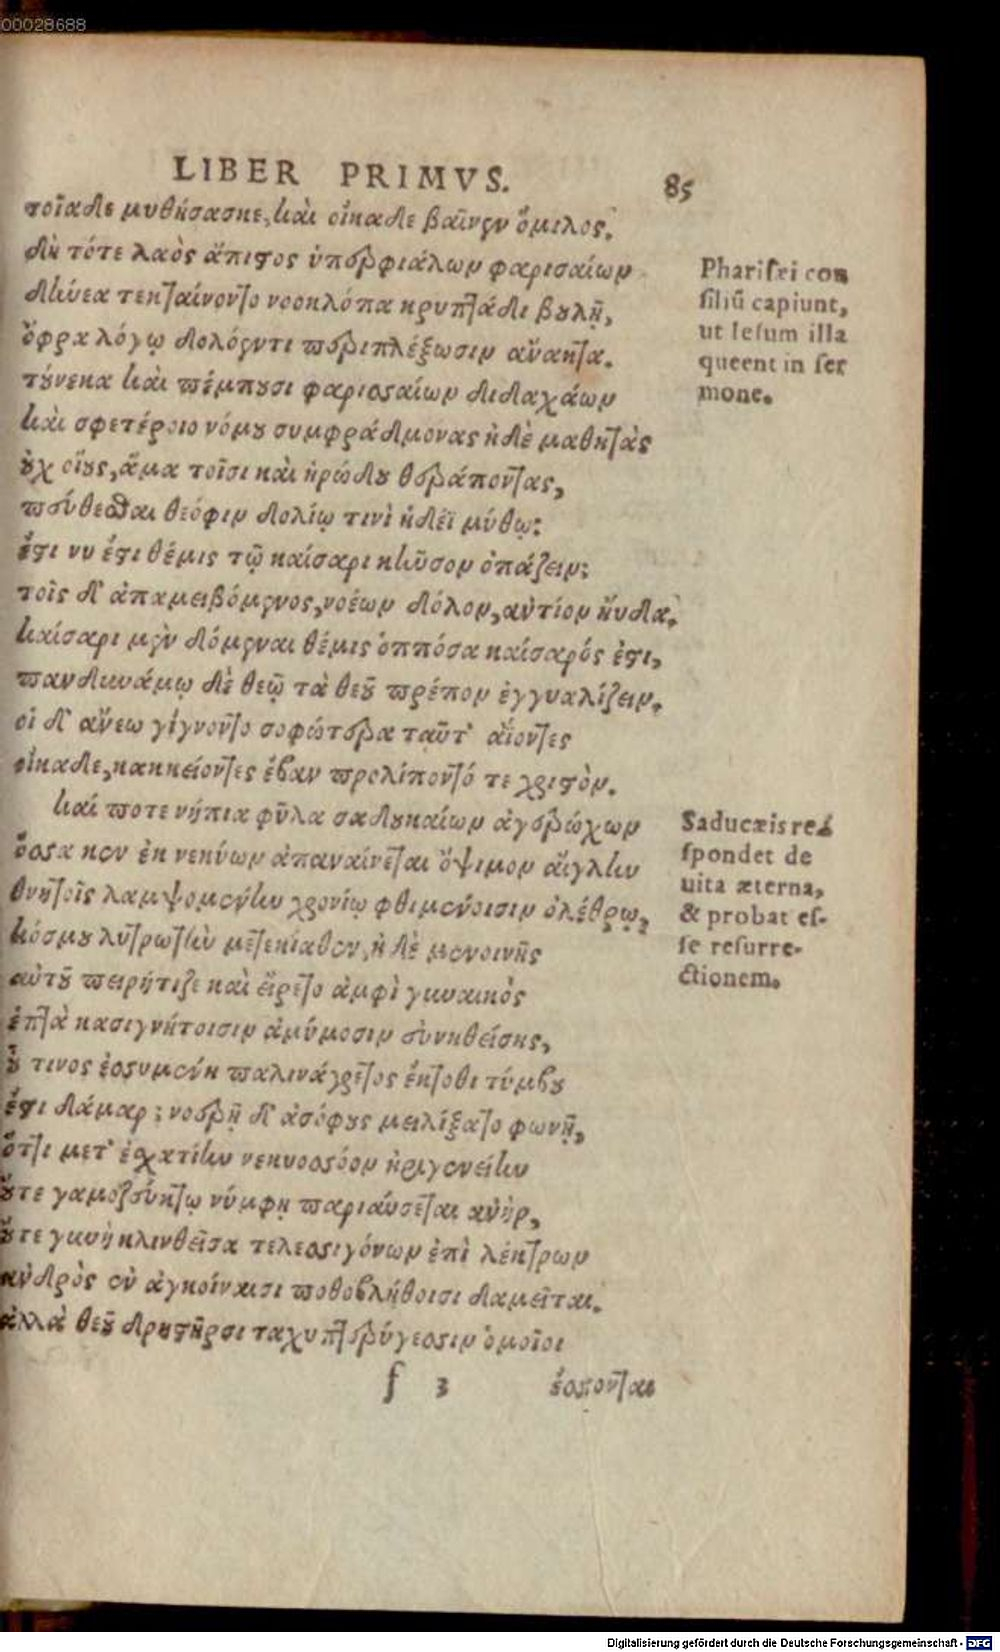 00028688
LIBER PRIMVS. 85
τοῖα δὲ μυθήσασκε, καὶ οἴκαδε βαῖνεν ὅμιλος.
δὴ τότε λαὸς ἄπιστος ὑπερφιάλων φαρισαίων
δήνεα τεκταίνοντο νοοκλόπα κρυπτάδι βουλῇ,
ὄφρα λόγῳ δολόεντι περιπλέξωσιν ἄνακτα.
τούνεκα καὶ πέμπουσι φαρισσαίων διδαχάων
καὶ σφετέροιο νόμου συμφράδμονας ἠδὲ μαθητὰς
οὐχ οἴους, ἅμα τοῖσι καὶ ἡρώδου θεράποντας,
πεύθεσθαι θεόφιν δολίῳ τινὶ ἡδέϊ μύθῳ:
ἔστι νυ ἔστι θέμις τῷ καίσαρι κῆνσον ὀπάζειν;
τοῖς δ' ἀπαμειβόμενος, νοέων δόλον, ἀντίον ηὔδα.
καίσαρι μὲν δόμεναι θέμις ὁππόσα καίσαρός ἐστι,
πανδυνάμῳ δὲ θεῷ τὰ θεοῦ πρέπον ἐγγυαλίζειν.
οἱ δ' ἄνεω γίγνοντο σοφώτερα ταῦτ' ἀΐοντες
οἴκαδε, κακκείοντες ἔβαν προλίποντό τε χριστόν.
καί ποτε νήπια φῦλα σαδουκαίων ἀγερώχων
ὅσσα κεν ἐκ νεκύων ἀπαναίνεται ὄψιμον αἴγλην
θνητοῖς λαμψομένην χρονίῳ φθιμένοισιν ὀλέθρῳ,
κόσμου λυτρωτὴν μετεκίαθεν, ἠδὲ μενοινῆς
αὐτοῦ πειρήτιζε καὶ εἴρετο ἀμφὶ γυναικὸς
ἑπτὰ κασιγνήτοισιν ἀμύμοσιν εὐνηθείσης,
οὗ τινος ἐσσυμένη παλινάγρετος ἔκτοθι τύμβου
ἔστι δάμαρ; νοερῇ δ' ἀσόφους μειλίξατο φωνῇ,
ὅττι μετ' ἐσχατίην νεκυοσσόον ἠριγενείην
οὔτε γαμοζεύκτῳ νύμφῃ παριαύσεται ἀνήρ,
οὔτε γυνὴ κλινθεῖσα τελεσσιγόνων ἐπὶ λέκτρων
ἀνδρὸς ἐν ἀγκοίναισι ποθοβλήθοισι δαμεῖται.
ἀλλὰ θεοῦ δρηστῆρσι ταχυπτερύγεσσιν ὁμοῖοι
f 3 ἔσσονται
Pharisæi con
siliū capiunt,
ut Iesum illa
queent in ser
mone.
Saducæis re-
spondet de
uita æterna,
& probat es-
se resurre-
ctionem.
Digitalisierung gefördert durch die Deutsche Forschungsgemeinschaft - DFG